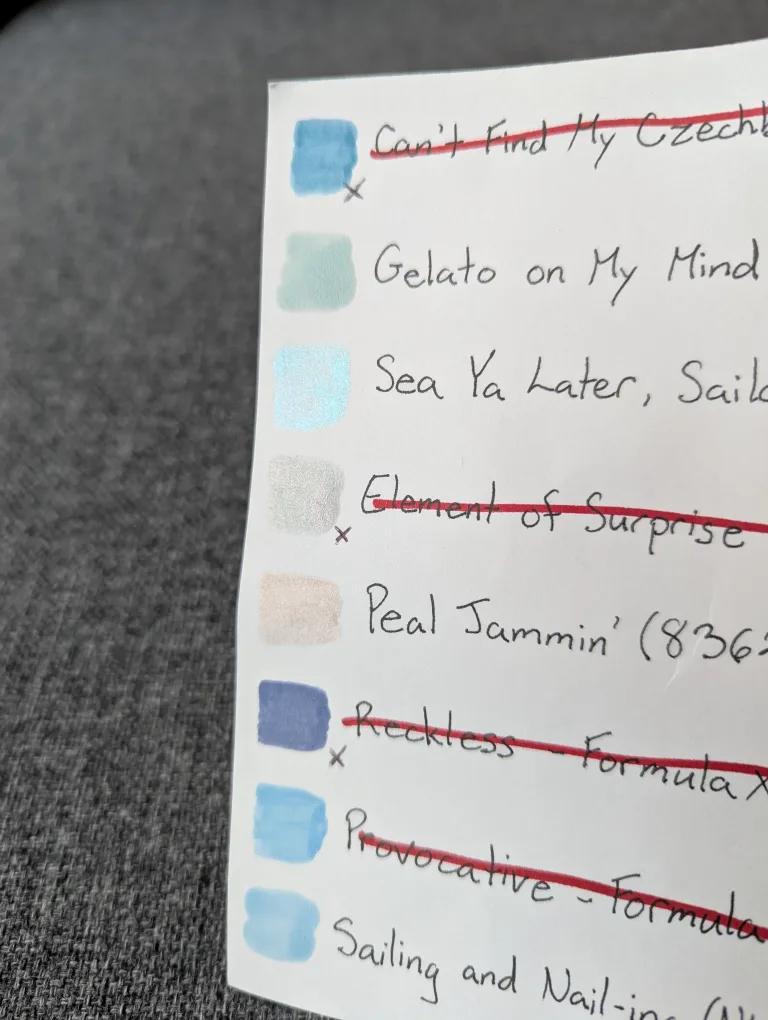 Can't Find My
Gelato on My Mind
Sea Ya Later,
Element of Surprise
Peal Jammin'
Reckless - Formula X
Provocative - Formula
Sailing and Nail-ing